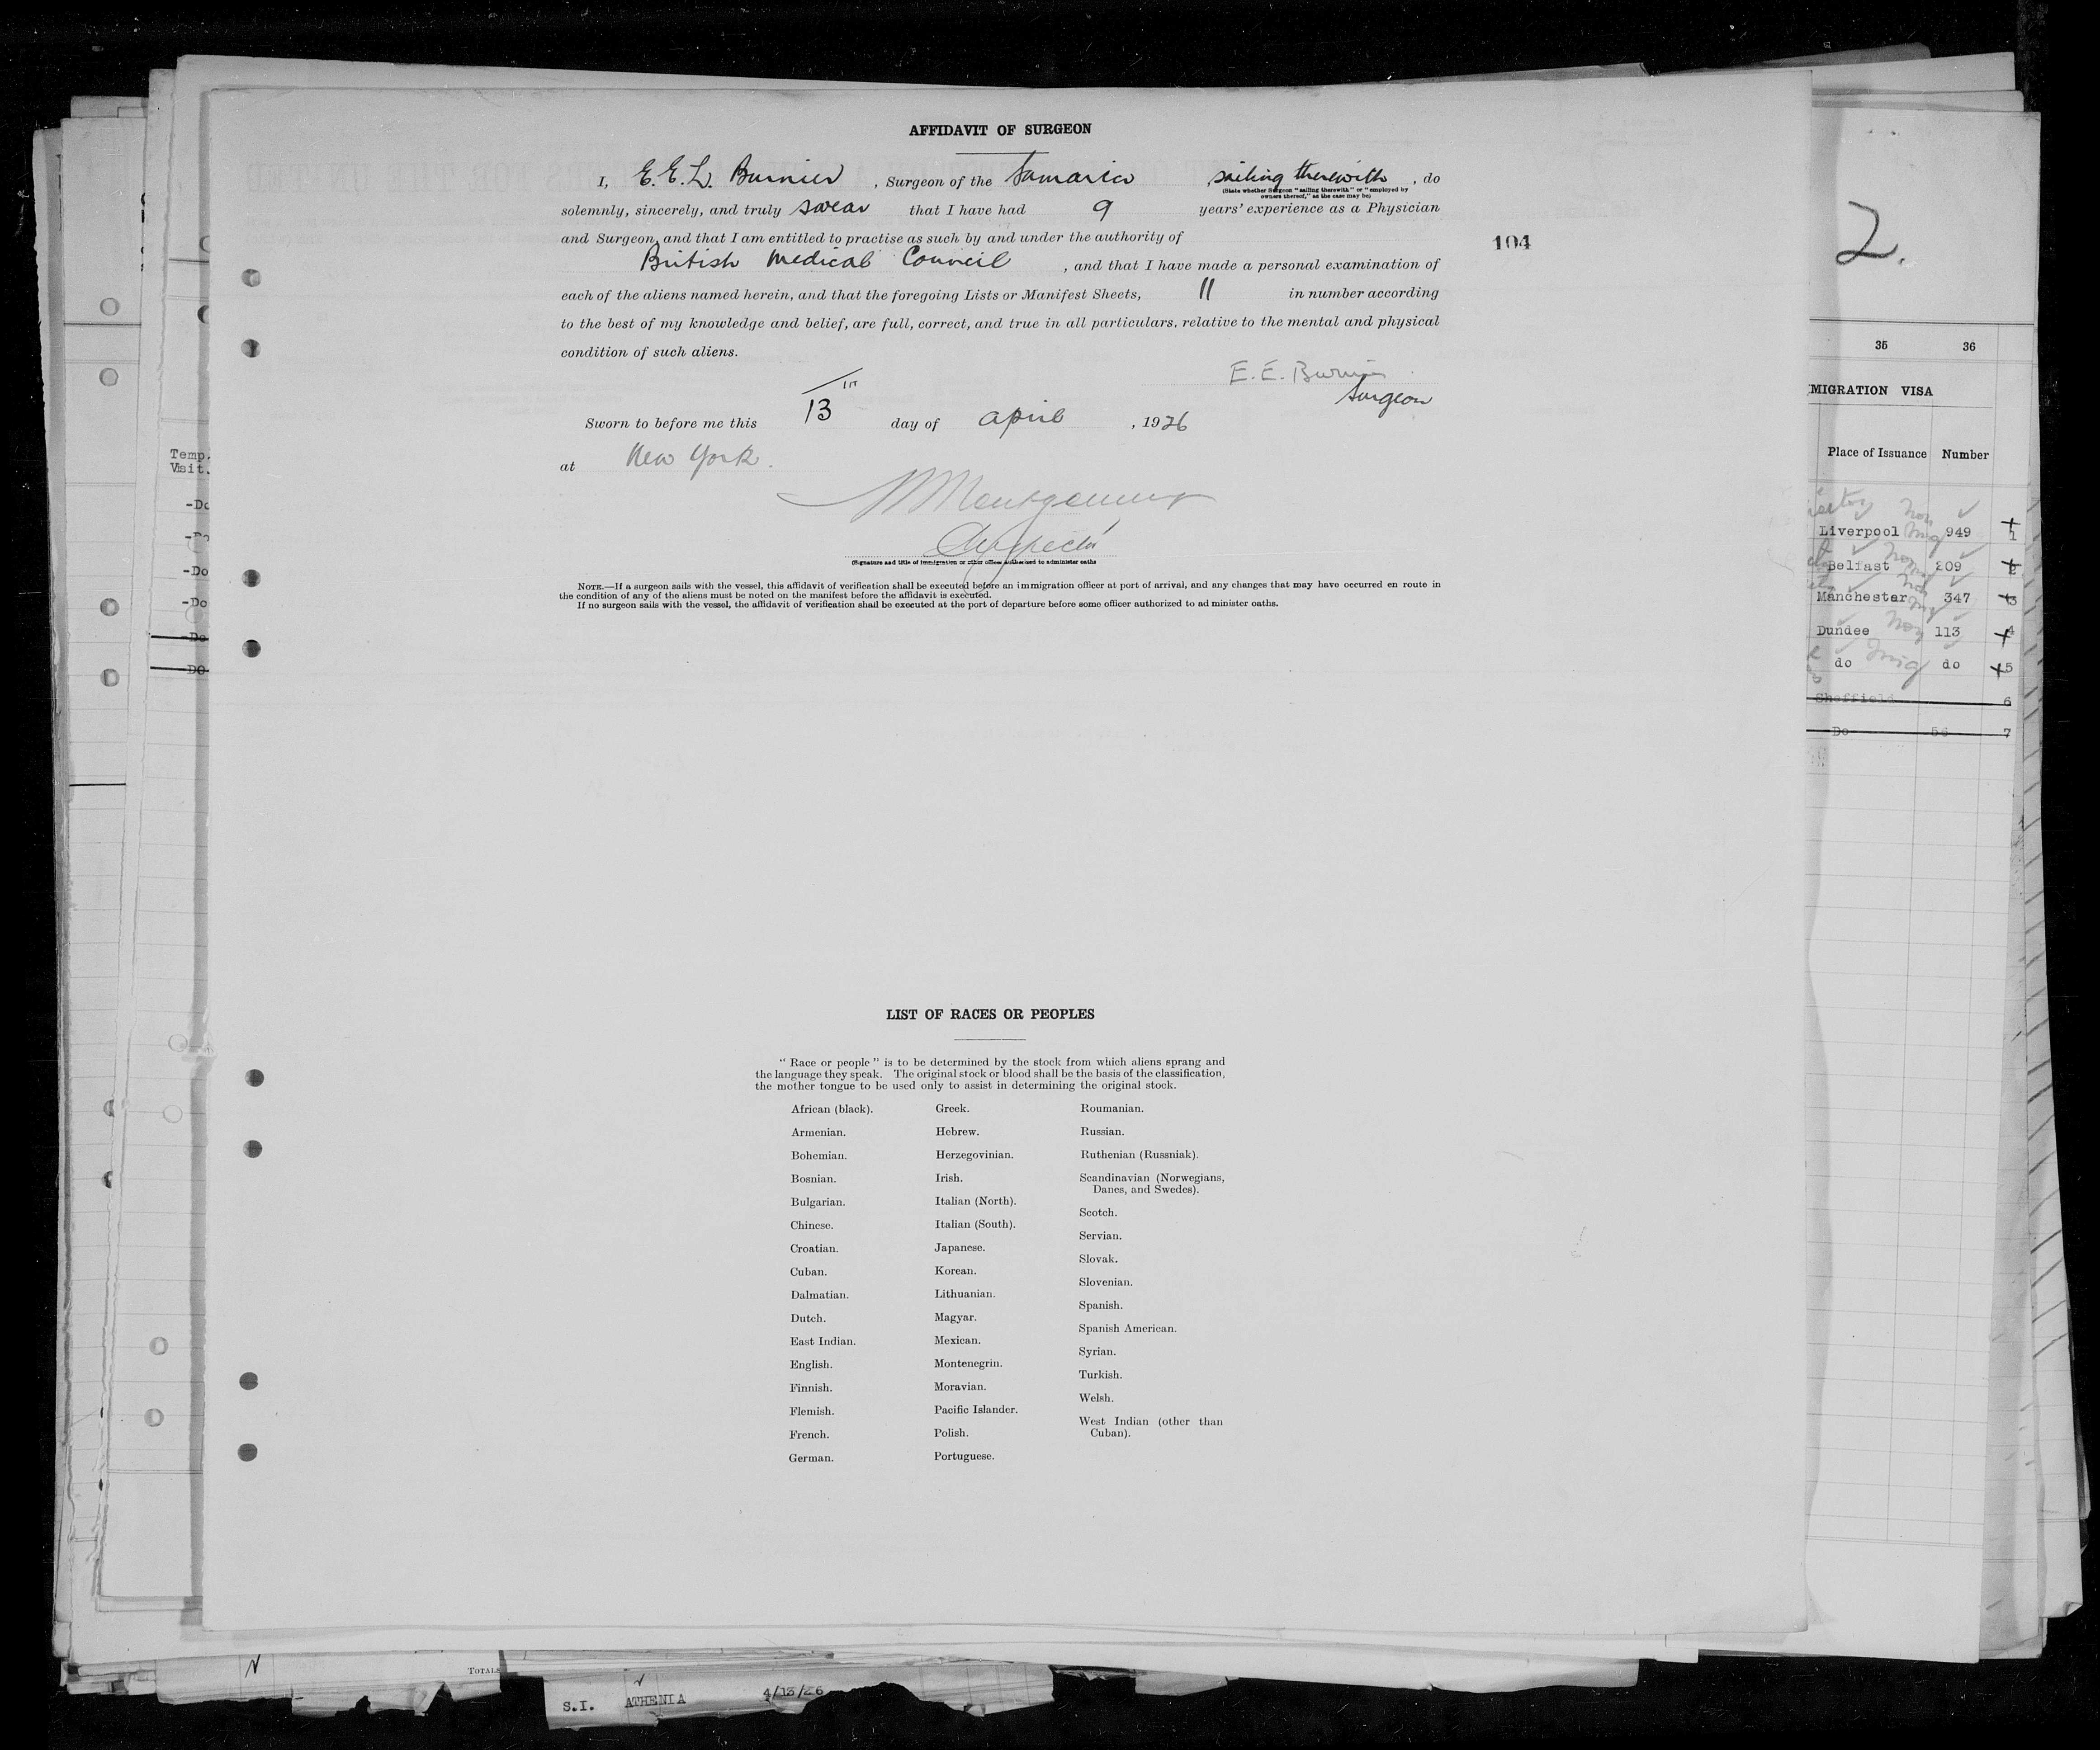 AFFIDAVIT OF SURGEON
I, E.E.L. Burnier, Surgeon of the Samaria sailing therewith, do
(State whether Surgeon "sailing therewith" or "employed by
owners thereof," as the case may be)
solemnly, sincerely, and truly swear that I have had 9 years' experience as a Physician
and Surgeon, and that I am entitled to practise as such by and under the authority of
British Medical Council, and that I have made a personal examination of
104
each of the aliens named herein, and that the foregoing Lists or Manifest Sheets, 11 in number according
to the best of my knowledge and belief, are full, correct, and true in all particulars, relative to the mental and physical
condition of such aliens.
E. E. Burnier
Surgeon
Sworn to before me this 13 day of april, 1926
at New York.
Montgomery
Inspector
(Signature and title of immigration or other officer authorised to administer oaths
NOTE.—If a surgeon sails with the vessel, this affidavit of verification shall be executed before an immigration officer at port of arrival, and any changes that may have occurred en route in
the condition of any of the aliens must be noted on the manifest before the affidavit is executed.
If no surgeon sails with the vessel, the affidavit of verification shall be executed at the port of departure before some officer authorized to ad minister oaths.
LIST OF RACES OR PEOPLES
" Race or people " is to be determined by the stock from which aliens sprang and
the language they speak. The original stock or blood shall be the basis of the classification,
the mother tongue to be used only to assist in determining the original stock.
African (black).
Armenian.
Bohemian.
Bosnian.
Bulgarian.
Chinese.
Croatian.
Cuban.
Dalmatian.
Dutch.
East Indian.
English.
Finnish.
Flemish.
French.
German.
Greek.
Hebrew.
Herzegovinian.
Irish.
Italian (North).
Italian (South).
Japanese.
Korean.
Lithuanian.
Magyar.
Mexican.
Montenegrin.
Moravian.
Pacific Islander.
Polish.
Portuguese.
Roumanian.
Russian.
Ruthenian (Russniak).
Scandinavian (Norwegians,
Danes, and Swedes).
Scotch.
Servian.
Slovak.
Slovenian.
Spanish.
Spanish American.
Syrian.
Turkish.
Welsh.
West Indian (other than
Cuban).
Temp.
Visit.
-Do
-Do
-Do
-Do
-DO
2.
35 36
MIGRATION VISA
Place of Issuance Number
Liverpool 949 1
Belfast 209 2
Manchester 347 3
Dundee 113 4
do do 5
Sheffield 6
Do 56 7
TOTALS
S.I. ATHENIA 4/13/26